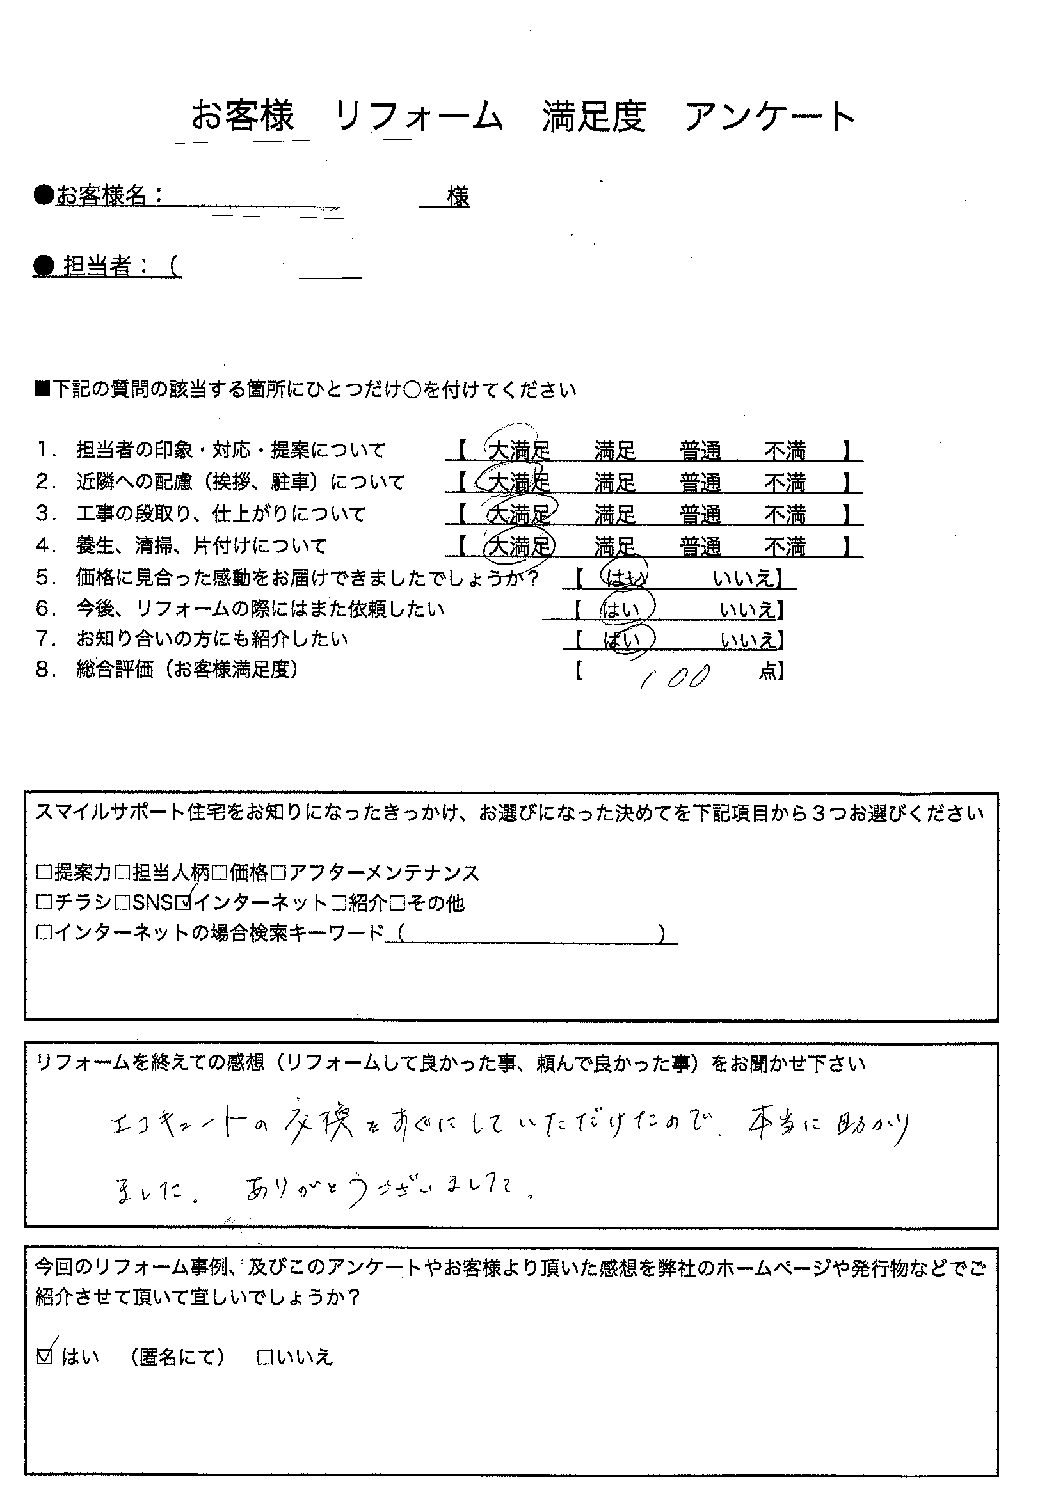 お客様　リフォーム　満足度　アンケート
●お客様名：　　　　　　　様
●担当者：（
■下記の質問の該当する箇所にひとつだけ○を付けてください
1．担当者の印象・対応・提案について　【　大満足　満足　普通　不満　】
2．近隣への配慮（挨拶、駐車）について　【　大満足　満足　普通　不満　】
3．工事の段取り、仕上がりについて　【　大満足　満足　普通　不満　】
4．養生、清掃、片付けについて　【　大満足　満足　普通　不満　】
5．価格に見合った感動をお届けできましたでしょうか？　【　はい　いいえ】
6．今後、リフォームの際にはまた依頼したい　【　はい　いいえ】
7．お知り合いの方にも紹介したい　【　はい　いいえ】
8．総合評価（お客様満足度）　【　100　点】
スマイルサポート住宅をお知りになったきっかけ、お選びになった決めてを下記項目から３つお選びください
□提案力□担当人柄□価格□アフターメンテナンス
□チラシ□SNS☑インターネット□紹介□その他
□インターネットの場合検索キーワード（　　　　　　　）
リフォームを終えての感想（リフォームして良かった事、頼んで良かった事）をお聞かせ下さい
エコキュートの交換をすぐにしていただけたので、本当に助かり
ました。ありがとうございました。
今回のリフォーム事例、及びこのアンケートやお客様より頂いた感想を弊社のホームページや発行物などでご
紹介させて頂いて宜しいでしょうか？
☑はい　（匿名にて）　□いいえ